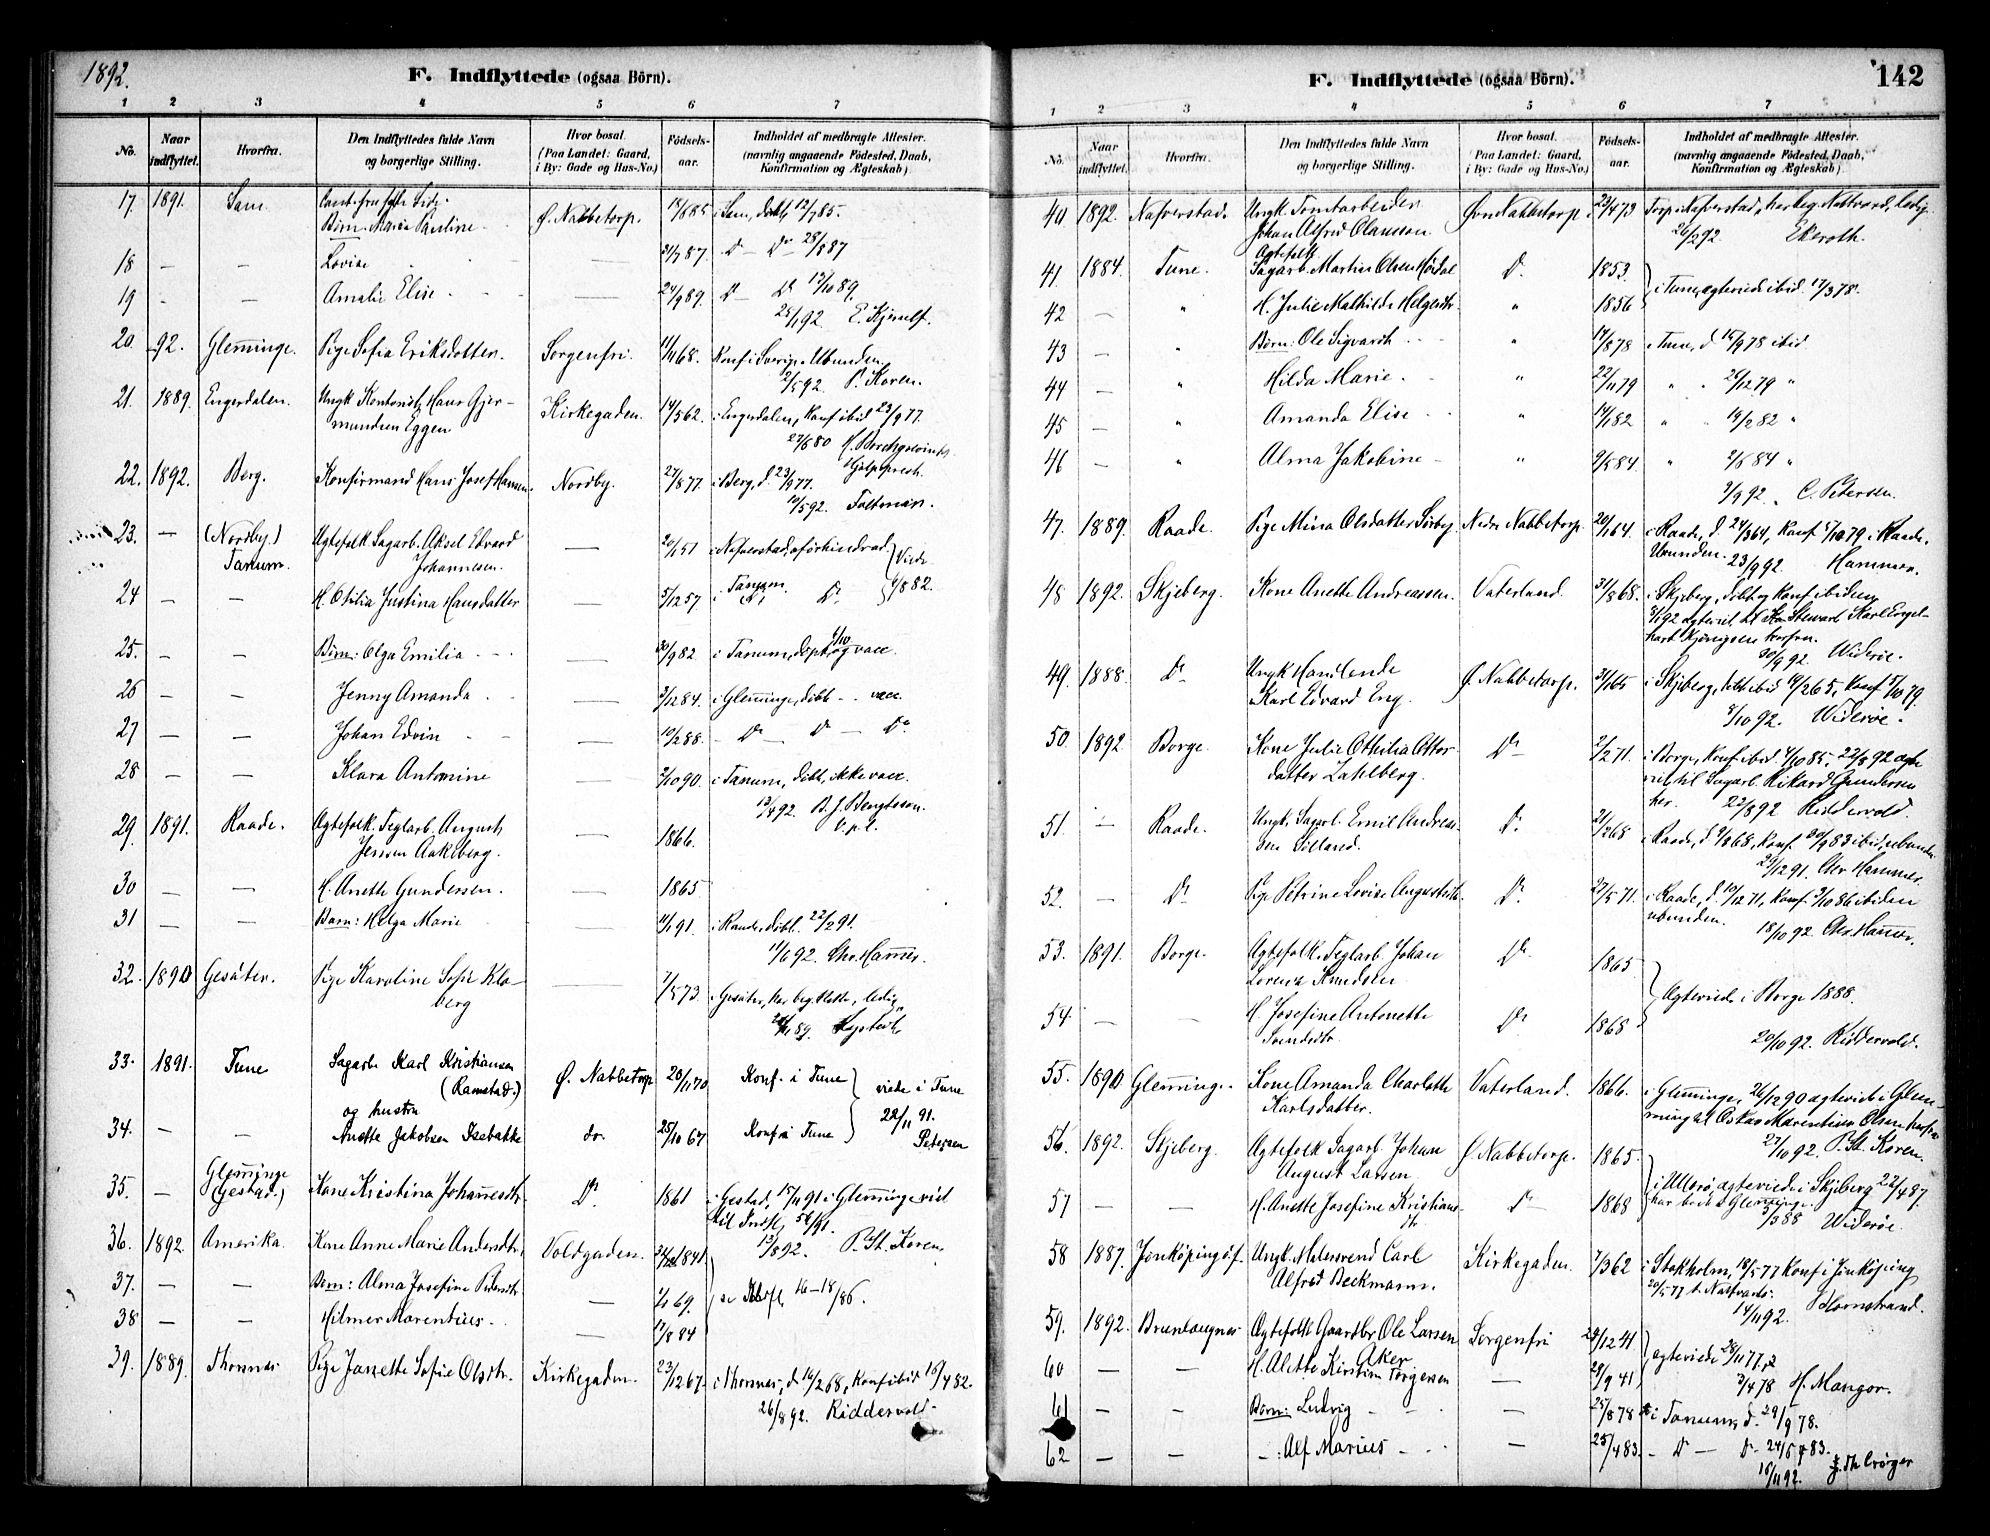 1892.
F. Indflyttede (ogsaa Börn).
1 2 3 4 5 6 7
No. Naar indflyttet. Hvorfra. Den Indflyttedes fulde Navn og borgerlige Stilling. Hvor bosat. (Paa Landet: Gaard, i By: Gade og Hus-No.) Födsels-aar. Indholdet af medbragte Attester. (navnlig angaaende Födested, Daab, Konfirmation og Ægteskab).
17. 1891. Sam.
Börn: Maria Pauline Ø. Nabbetorp. i Sam, döbt 12/785.
18 — — Lovise 21/787 D— Do 28/887
19 — — Amalie Elise 24/989. D— Do 12/1089.
25/192. E. Kjerulf.
20. -92. Glemminge. Pige Sofia Eriksdotter. Sorgenfri. 11/1168. Konf. i Sverig. Ubunden.
2/592 P. Koren.
21. 1889. Engerdalen. Ungk. Kontorist, Hans Gjer-
mundsen Eggen Kirkegaden. 14/562. i Engerdalen, Konf. ibid 23/977.
27/680
Hjelpeprest.
22. 1892. Berg. Konfirmand Hans Josef Hansen. Nordby. 27/877 i Berg, d. 23/977.
10/592. Faltman.
23. — (Nordby.) Ægtefolk Sagarb. Aksel Edvard — 20/151 i Nafverstad, oförhindrad. Viede
Tanum. Johannesen. 9/882.
24 — — H. Otilia Justina Hansdatter — 5/1257 i Tanum. Do
25. — — Börn: Olga Emilia — 30/982 i Tanum, döpt 1/10 og vacc.
26 — — Jenny Amanda — 3/1284. i Glemminge, döbt — vacc.
27 — — Johan Edvin — 10/288. — Do — Do — Do
28 — — Klara Antonine — 2/1090. i Tanum, döbt, ikke vacc.
13/492. B. J. Bengtsson.
v. p. l.
29. 1891. Raade. Ægtefolk. Teglarb. August — 1866.
Jensen Aakeberg.
30 — — H. Anette Gundersen. — 1865
31 — — Barn: Helga Marie — 11/191. i Raade, döbt. 22/291.
11/692. Chr. Hammer.
32. 1890 Gesäter. Pige Karoline Sofie Klo-
berg — 7/573 i Gesäter, har beg. Natt., ledig
33. 1891. Tune Sagarb. Karl Kristiansen
(Ramstad.) Ø. Nabbetorp 20/1170. Konf. i Tune viede i Tune
og hustru 22/11 91.
34. — — Anette Jakobsen Isebakke do. 25/10 67. Konf. i Tune Petersen
35. — Glemminge (Gestad.) Kone Kristina Johannesdtr. Do. 1861 i Gestad, 15/1191 i Glemminge viet
til
13/892. P. St. Koren.
36. 1892. Amerika. Kone Anne Marie Andersdtr. Voldgaden. 1841.
37. — — Barn: Alma Josefine Petersdtr. — 1/169. 16—18/86.
38 — — Hilmer Marentius — 17/884
39. 1889. Thorsnes Pige Janette Sofie Olsdtr. Kirkegaden. 23/1267. i Thorsnes, d 16/268, Konf. ibid 16/482.
26/892. Riddervold.
F. Indflyttede (ogsaa Börn).
142
1 2 3 4 5 6 7
No. Naar indflyttet. Hvorfra. Den Indflyttedes fulde Navn og borgerlige Stilling. Hvor bosat. (Paa Landet: Gaard, i By: Gade og Hus-No.) Födsels-aar. Indholdet af medbragte Attester. (navnlig angaaende Födested, Daab, Konfirmation og Ægteskab)
40 1892. Nafverstad. Ungk. Tomtarbeider
Johan Alfred Olausson. Øvre Nabbetorp 23/473 Torp i Nafverstad, har beg. Nattvard, ledig.
26/292. Ekeroth.
Ægtefolk
41 1884. Tune. Sagarb. Martin Olsen Do. 1853. i Tune, ægteviede ibid. 17/378.
42 — " H. Julie Mathilde Helgesdtr. " 1856
43 — " Börn: Ole Sigvardt " 17/878 i Tune, d 15/978 ibid
44 — " Hilda Marie. " 22/1179 " " 26/1279 "
45 — " Amanda Elise " 14/182 " " 19/282 "
46 — " Alma Jakobine — " 9/584. " 2/684 "
9/992. C. Petersen.
47. 1889. Raade. Pige Mina Olsdatter Sörby. Nedre Nabbetorp. 20/164. i Raade, d. 24/364, Konf. 5/1079 i Raade.
Ubunden. 23/992. Hammer.
48 1892. Skjeberg. Kone Anette Andreassen. Vaterland. 31/868. i Skjeberg, döbt og konf. ibidem,
8/192 ægteviet til Stewart Karl Engel-
30/992. Wideröe.
49. 1888. Do Ungk. Handlende
Karl Edvard Eng. Ø. Nabbetorp. 31/165 i Skjeberg, döbt ibid 19/265, Konf. 5/1079.
8/1092. Wideröe.
50. 1892 Borge. Kone Julie Othilia Ottos-
datter Zahlberg. Do— 2/271. i Borge, Konf. ibid. 4/1085, 22/892 ægte-
viet til Sagarb. Rikard Gundersen
her. 22/892 Riddervold.
51. — Raade. Ungk. Sagarb. Emil Andreas-
sen Do. 21/268 i Raade, d. 9/868, Konf. 30/983 ibid, ubunden
29/1291. Chr. Hammer.
52. — Do Pige Petrine Lovise Augustsdtr. Do. 27/571. i Raade, d. 10/1271, Konf. 3/1086 ibidem
ubunden. 18/1092. Chr. Hammer.
53. 1891. Borge. Ægtefolk. Teglarb. Johan
Lorens Knudsen Do. 1865 Ægteviede i Borge 1888.
54 — — H. Josefine Antonette
Svendsdtr. Do 1868
20/1092. Riddervold.
55. 1890 Glemminge. Kone Amanda Charlotte
Karlsdatter. Vaterland. 1866. i Glemminge, 26/1290 ægteviet i Glem-
minge til Oskar Marentius Olsen herfra
27/1092. P. St. Koren.
56. 1892. Skjeberg. Ægtefolk Sagarb. Johan
August Larsen Ø. Nabbetorp. 1865 i Ullerö, ægteviede i Skjeberg 22/487.
57 — — H. Anette Josefine Kristians-
dtr. Do— 1868 5/388 Wideröe.
58 1887. Jonköping Ungk. Malersvend Carl
Alfred Beckmann. Kirkegaden. 7/362 i Stokholm, 18/577 Konf. i Jonköping,
20/577 t. Nattvard.
14/1192. Hornstrand.
59. 1892. Brunlaugnes Ægtefolk Gaardbr. Ole Larsen
Aker Sorgenfri 28/1241 ægteviede 28/1177
60 — — H. Alette Kirstine Torgersen — 28/941 3/478 H. Mangor.
61 — — Barn: Ludvig — 25/878 i Tanum, d. 29/978.
62 — — —: Alf Marius — 25/483. — Do — Do 24/683.
16/1192.